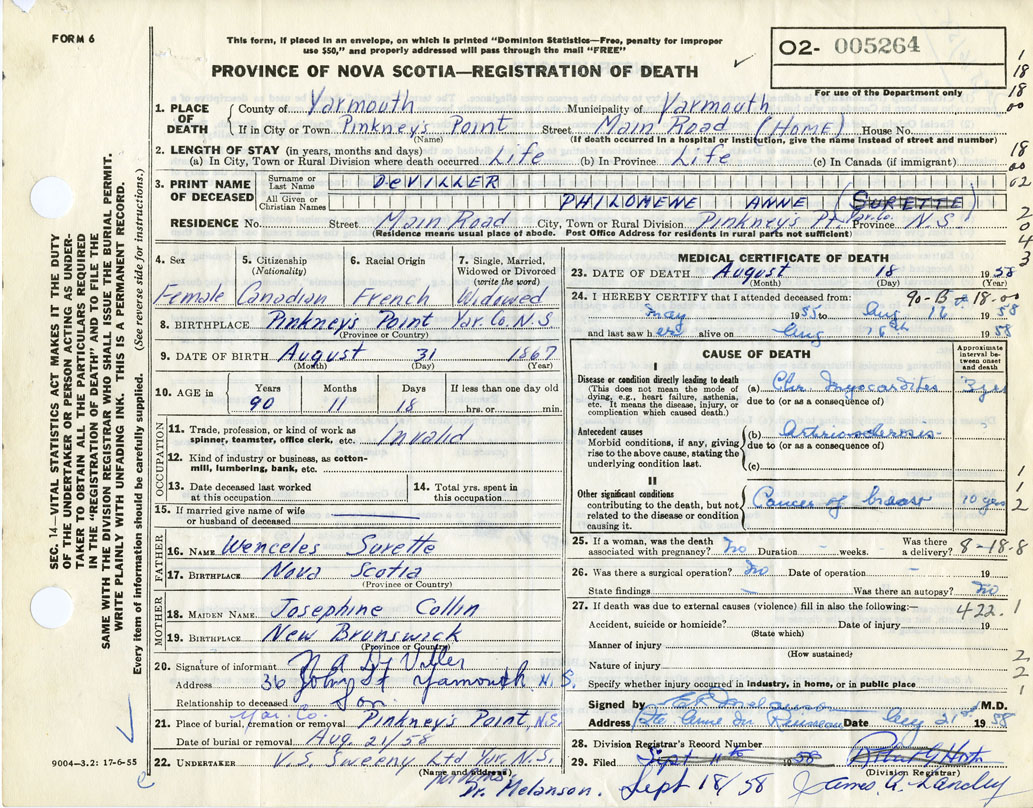 FORM 6
This form, if placed in an envelope, on which is printed "Dominion Statistics—Free, penalty for improper
use $50," and properly addressed will pass through the mail "FREE"
PROVINCE OF NOVA SCOTIA—REGISTRATION OF DEATH
02- 005264
For use of the Department only
1. PLACE OF DEATH County of Yarmouth Municipality of Yarmouth
If in City or Town Pinkney's Point Street Main Road (HOME) House No.
(Name) (If death occurred in a hospital or institution, give the name instead of street and number)
2. LENGTH OF STAY (in years, months and days)
(a) In City, Town or Rural Division where death occurred Life (b) In Province Life (c) In Canada (if immigrant)
3. PRINT NAME OF DECEASED Surname or Last Name DEVILLER
All Given or Christian Names PHILOMENE ANNE (SURETTE)
RESIDENCE No. Street Main Road City, Town or Rural Division Pinkney's Pt. Yar. Co. Province N.S
(Residence means usual place of abode. Post Office Address for residents in rural parts not sufficient)
4. Sex Female
5. Citizenship (Nationality) Canadian
6. Racial Origin French
7. Single, Married, Widowed or Divorced (write the word) Widowed
8. BIRTHPLACE Pinkney's Point Yar. Co. N.S
(Province or Country)
9. DATE OF BIRTH August 31 1867
(Month) (Day) (Year)
10. AGE in Years 90 Months 11 Days 18 If less than one day old hrs. or min.
OCCUPATION
11. Trade, profession, or kind of work as spinner, teamster, office clerk, etc. Invalid
12. Kind of industry or business, as cotton-mill, lumbering, bank, etc.
13. Date deceased last worked at this occupation
14. Total yrs. spent in this occupation
15. If married give name of wife or husband of deceased
FATHER
16. NAME Wenceles Surette
17. BIRTHPLACE Nova Scotia
(Province or Country)
MOTHER
18. MAIDEN NAME Josephine Collin
19. BIRTHPLACE New Brunswick
(Province or Country)
20. Signature of informant N A De Viller
Address 36 John St Yarmouth N.S.
Relationship to deceased Son
21. Place of burial, cremation or removal Yar. Co. Pinkney's Point, N.S.
Date of burial or removal Aug. 21/58
22. UNDERTAKER V.S. Sweeny Ltd Yar. N.S.
(Name and address)
Dr. Melanson.
MEDICAL CERTIFICATE OF DEATH
23. DATE OF DEATH August 18 1958
(Month) (Day) (Year)
90-B 18-00
24. I HEREBY CERTIFY that I attended deceased from:
May 1955 to Aug 16 1958
and last saw her alive on Aug 16th 1958
CAUSE OF DEATH
Approximate interval between onset and death
I
Disease or condition directly leading to death
(This does not mean the mode of dying, e.g., heart failure, asthenia, etc. It means the disease, injury, or complication which caused death.)
(a) Chr Myocarditis 3 yrs
due to (or as a consequence of)
Antecedent causes
Morbid conditions, if any, giving rise to the above cause, stating the underlying condition last.
(b) Arteriosclerosis
due to (or as a consequence of)
(c)
II
Other significant conditions
contributing to the death, but not related to the disease or condition causing it.
Cancer of breast 10 yrs
25. If a woman, was the death associated with pregnancy? No Duration - weeks. Was there a delivery? 8-18-8
26. Was there a surgical operation? No Date of operation - 19
State findings - Was there an autopsy? No
27. If death was due to external causes (violence) fill in also the following:— 422.1
Accident, suicide or homicide? Date of injury 19
(State which)
Manner of injury
(How sustained)
Nature of injury
Specify whether injury occurred in industry, in home, or in public place
Signed by M.D.
Address Ste Anne du Ruisseau Date Aug 21st 1958
28. Division Registrar's Record Number
29. Filed Sept 11th 1958
(Division Registrar)
Sept 18/58 James A. Landry
SEC. 14—VITAL STATISTICS ACT MAKES IT THE DUTY
OF THE UNDERTAKER OR PERSON ACTING AS UNDER-
TAKER TO OBTAIN ALL THE PARTICULARS REQUIRED
IN THE "REGISTRATION OF DEATH" AND TO FILE THE
SAME WITH THE DIVISION REGISTRAR WHO SHALL ISSUE THE BURIAL PERMIT.
WRITE PLAINLY WITH UNFADING INK. THIS IS A PERMANENT RECORD.
Every item of information should be carefully supplied. (See reverse side for instructions.)
9004—3.2: 17-6-55
1
18
18
00
18
00
02
2
0
4
3
1
1
2
2
2
1